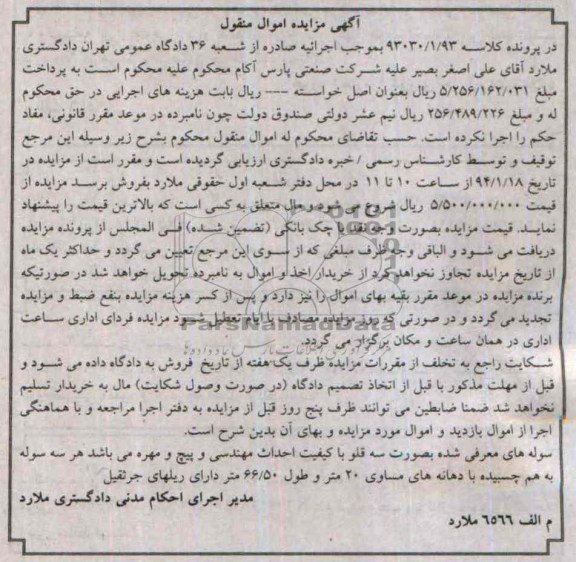 آگهی مزایده اموال منقول
در پرونده کلاسه ۹۳۰۳۰/۱/۹۳ بموجب اجرائیه صادره از شعبه ۳۶ دادگاه عمومی تهران دادگستری
ملارد آقای علی اصغر بصیر علیه شرکت صنعتی پارس آکام محکوم علیه محکوم است به پرداخت
مبلغ ۵/۲۵۶/۱۶۲/۰۳۱ ریال بعنوان اصل خواسته --- ریال بابت هزینه های اجرایی در حق محکوم
له و مبلغ ۲۵۶/۴۸۹/۲۲۶ ریال نیم عشر دولتی صندوق دولت چون نامبرده در موعد مقرر قانونی، مفاد
حکم را اجرا نکرده است. حسب تقاضای محکوم له اموال منقول محکوم بشرح زیر وسیله این مرجع
توقیف و توسط کارشناس رسمی / خبره دادگستری ارزیابی گردیده است و مقرر است از مزایده در
تاریخ ۹۴/۱/۱۸ از ساعت ۱۰ تا ۱۱ در محل دفتر شعبه اول حقوقی ملارد بفروش برسد مزایده از
قیمت ۵/۵۰۰/۰۰۰/۰۰۰ ریال شروع می شود و مال متعلق به کسی است که بالاترین قیمت را پیشنهاد
نماید. قیمت مزایده بصورت وجه نقد یا چک بانکی (تضمین شده) فی المجلس از پرونده مزایده
دریافت می شود و الباقی وجه ظرف مبلغی که از سوی این مرجع تعیین می گردد و حداکثر یک ماه
از تاریخ مزایده تجاوز نخواهد کرد از خریدار اخذ و اموال به نامبرده تحویل خواهد شد در صورتیکه
برنده مزایده در موعد مقرر بقیه بهای اموال را نیز دارد و پس از کسر هزینه مزایده بنفع ضبط و مزایده
تجدید می گردد و در صورتی که روز مزایده مصادف با ایام تعطیل شود مزایده فردای اداری ساعت
اداری در همان ساعت و مکان برگزار می گردد.
شکایت راجع به تخلف از مقررات مزایده ظرف یک هفته از تاریخ فروش به دادگاه داده می شود و
قبل از مهلت مذکور یا قبل از اتخاذ تصمیم دادگاه (در صورت وصول شکایت) مال به خریدار تسلیم
نخواهد شد ضمنا ضابطین می توانند ظرف پنج روز قبل از مزایده به دفتر اجرا مراجعه و با هماهنگی
اجرا از اموال بازدید و اموال مورد مزایده و بهای آن بدین شرح است.
سوله های معرفی شده بصورت سه قلو با کیفیت احداث مهندسی و پیچ و مهره می باشد هر سه سوله
به هم چسبیده با دهانه های مساوی ۲۰ متر و طول ۶۶/۵۰ متر دارای ریلهای جرثقیل
مدیر اجرای احکام مدنی دادگستری ملارد
م الف ۶۵۶۶ ملارد
ParsNamadData